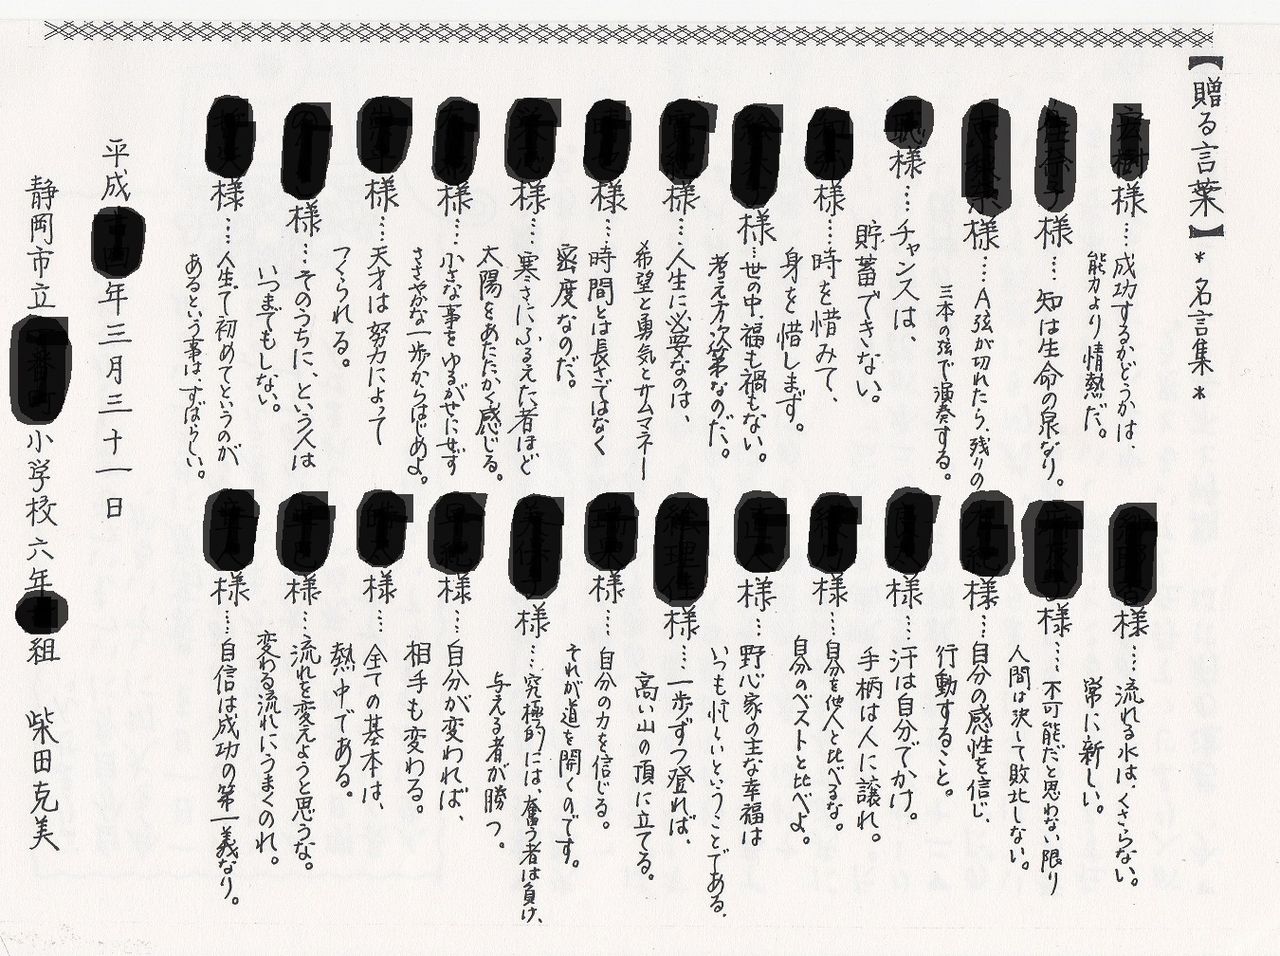 【贈る言葉】＊名言集＊
様…成功するかどうかは、
能力より情熱だ。
様…知は生命の泉なり。
様…A弦が切れたら、残りの
三本の弦で演奏する。
様…チャンスは、
貯蓄できない。
様…時を惜みて、
身を惜しまず。
様…世の中、福も禍もない。
考え方次第なのだ。
様…人生に必要なのは、
希望と勇気とサムマネー
様…時間とは長さではなく
密度なのだ。
様…寒さにふるえた者ほど
太陽をあたたかく感じる。
様…小さな事をゆるがせにせず
ささやかな一歩からはじめよ。
様…天才は努力によって
つくられる。
様…そのうちに、という人は
いつまでもしない。
様…人生で初めてというのが
あるという事は、すばらしい。
様…流れる水は、くさらない。
常に新しい。
様…不可能だと思わない限り
人間は決して敗北しない。
様…自分の感性を信じ、
行動すること。
様…汗は自分でかけ。
手柄は人に譲れ。
様…自分を他人と比べるな。
自分のベストと比べよ。
様…野心家の主な幸福は
いつも忙しいということである。
様…一歩ずつ登れば、
高い山の頂に立てる。
様…自分の力を信じる。
それが道を開くのです。
様…究極的には、奪う者は負け、
与える者が勝つ。
様…自分が変われば、
相手も変わる。
様…全ての基本は、
熱中である。
様…流れを変えようと思うな。
変わる流れにうまくのれ。
様…自信は成功の第一義なり。
平成年三月三十一日
静岡市立小学校六年組 柴田克美